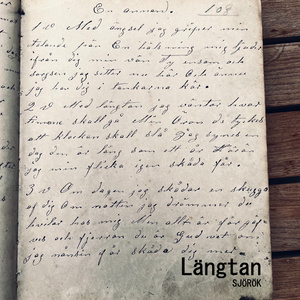 En annan. 108
1 v Med ängsel jag griper min
från En hälsning mig
ifrån dig min vän Ty ensam och
sorgsen jag sitter nu här Och ännu
jag har dig i tankarna kär.
2 v Med längtan jag väntar hvar
timme skall gå Min Oron de tyckes
att klockan skall slå Jag synes en
dag den är lång som ett år Förrän
jag min flicka igen skåda får.
3 v Om dagen jag skådar en skugga
af dig Om natten jag drömmer du
hvilar hos mig Men allt är
och fjerran du är Gud vet om
jag nånsin får skåda dig mer.
Längtan
SJÖRÖK